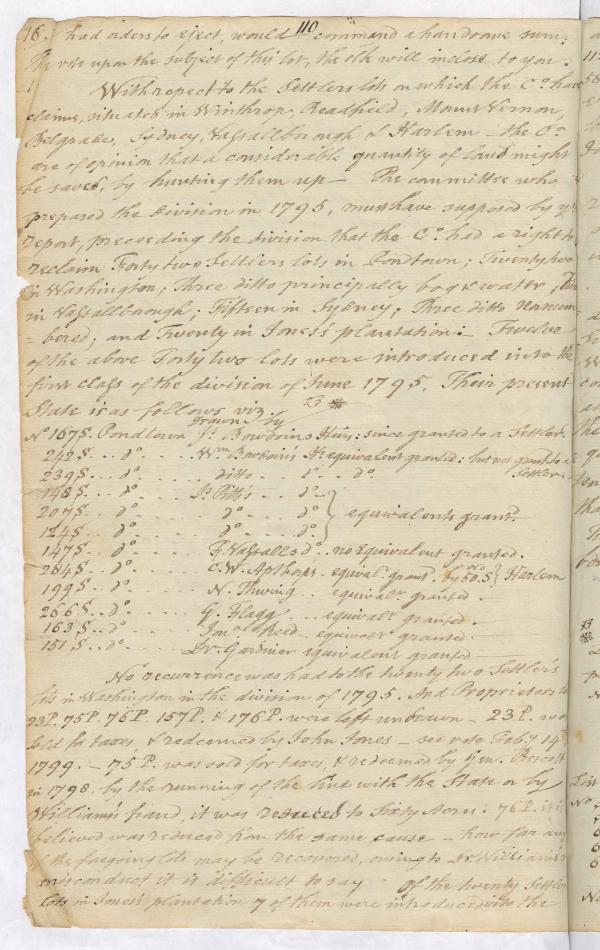 16. had orders to eject, would 110 command a handsome sum:
The vote upon the subject of this lot, the clk will inclose to you.
With respect to the Settlers lots on which the Co. have
claims, situated in Winthrop, Readfield, Mount Vernon,
Belgrade, Sydney, Vassallborough & Harlem – the Co.
are of opinion that a considerable quantity of land might
be saved, by hunting them up – The committee who
prepared the division in 1795, must have supposed by yr
report, preceeding the division that the Co. had a right to
reclaim Forty two Settlers lots in Pondtown; Twenty two
in Washington; Three ditto principally bog & water;
in Vassallborough; Fifteen in Sydney; Three ditto Unnum
=bered; and Twenty in Jones's plantation: – Twelve
of the above Forty two lots were introduced into the
first class of the division of June 1795. Their present
State is as follows viz.
Drawn by
No 167S. Pondtown Js. Bowdoins Heirs: since granted to a Settler.
242S .. do. Wm Bowdoin's Hs equivalent granted: but not grant. to a
239S .. do. ditto do. do. Settler.
148S .. do. Ps. Pitts do.
207S .. do. do. do. } equivalents grant.
124S .. do. do. do.
147S .. do. F. Vassalls do. no Equivalent granted.
284S .. do. C. W. Apthorps. equival. grant. by No 50.S } Harlem
199S .. do. N. Thwing. equivalt. granted
266S .. do. G. Flagg ... equivalt. granted.
163S .. do. Reed .. equivalt. granted
151S .. do. Dr. Gardiner equivalent granted
No recurrence was had to the twenty two Settler's
lots in Washington in the division of 1795. And Proprietors
23P. 75P. 76P. 157P. & 176P. were left undrawn – 23P. was
sold for taxes, & redeemed by John Jones – see vote Feby. 14
1799. – 75P. was sold for taxes, & redeemed by
in 1798. by the running of the line with the State or by
William's fraud, it was reduced to Sixty Acres: 76P. it is
believed was reduced from the same cause – how far any
of the foregoing lots may be recovered, owing to Dr. William's
misconduct it is difficult to say Of the twenty Settler
lots in Jones' plantation 7 of them were introduced into the